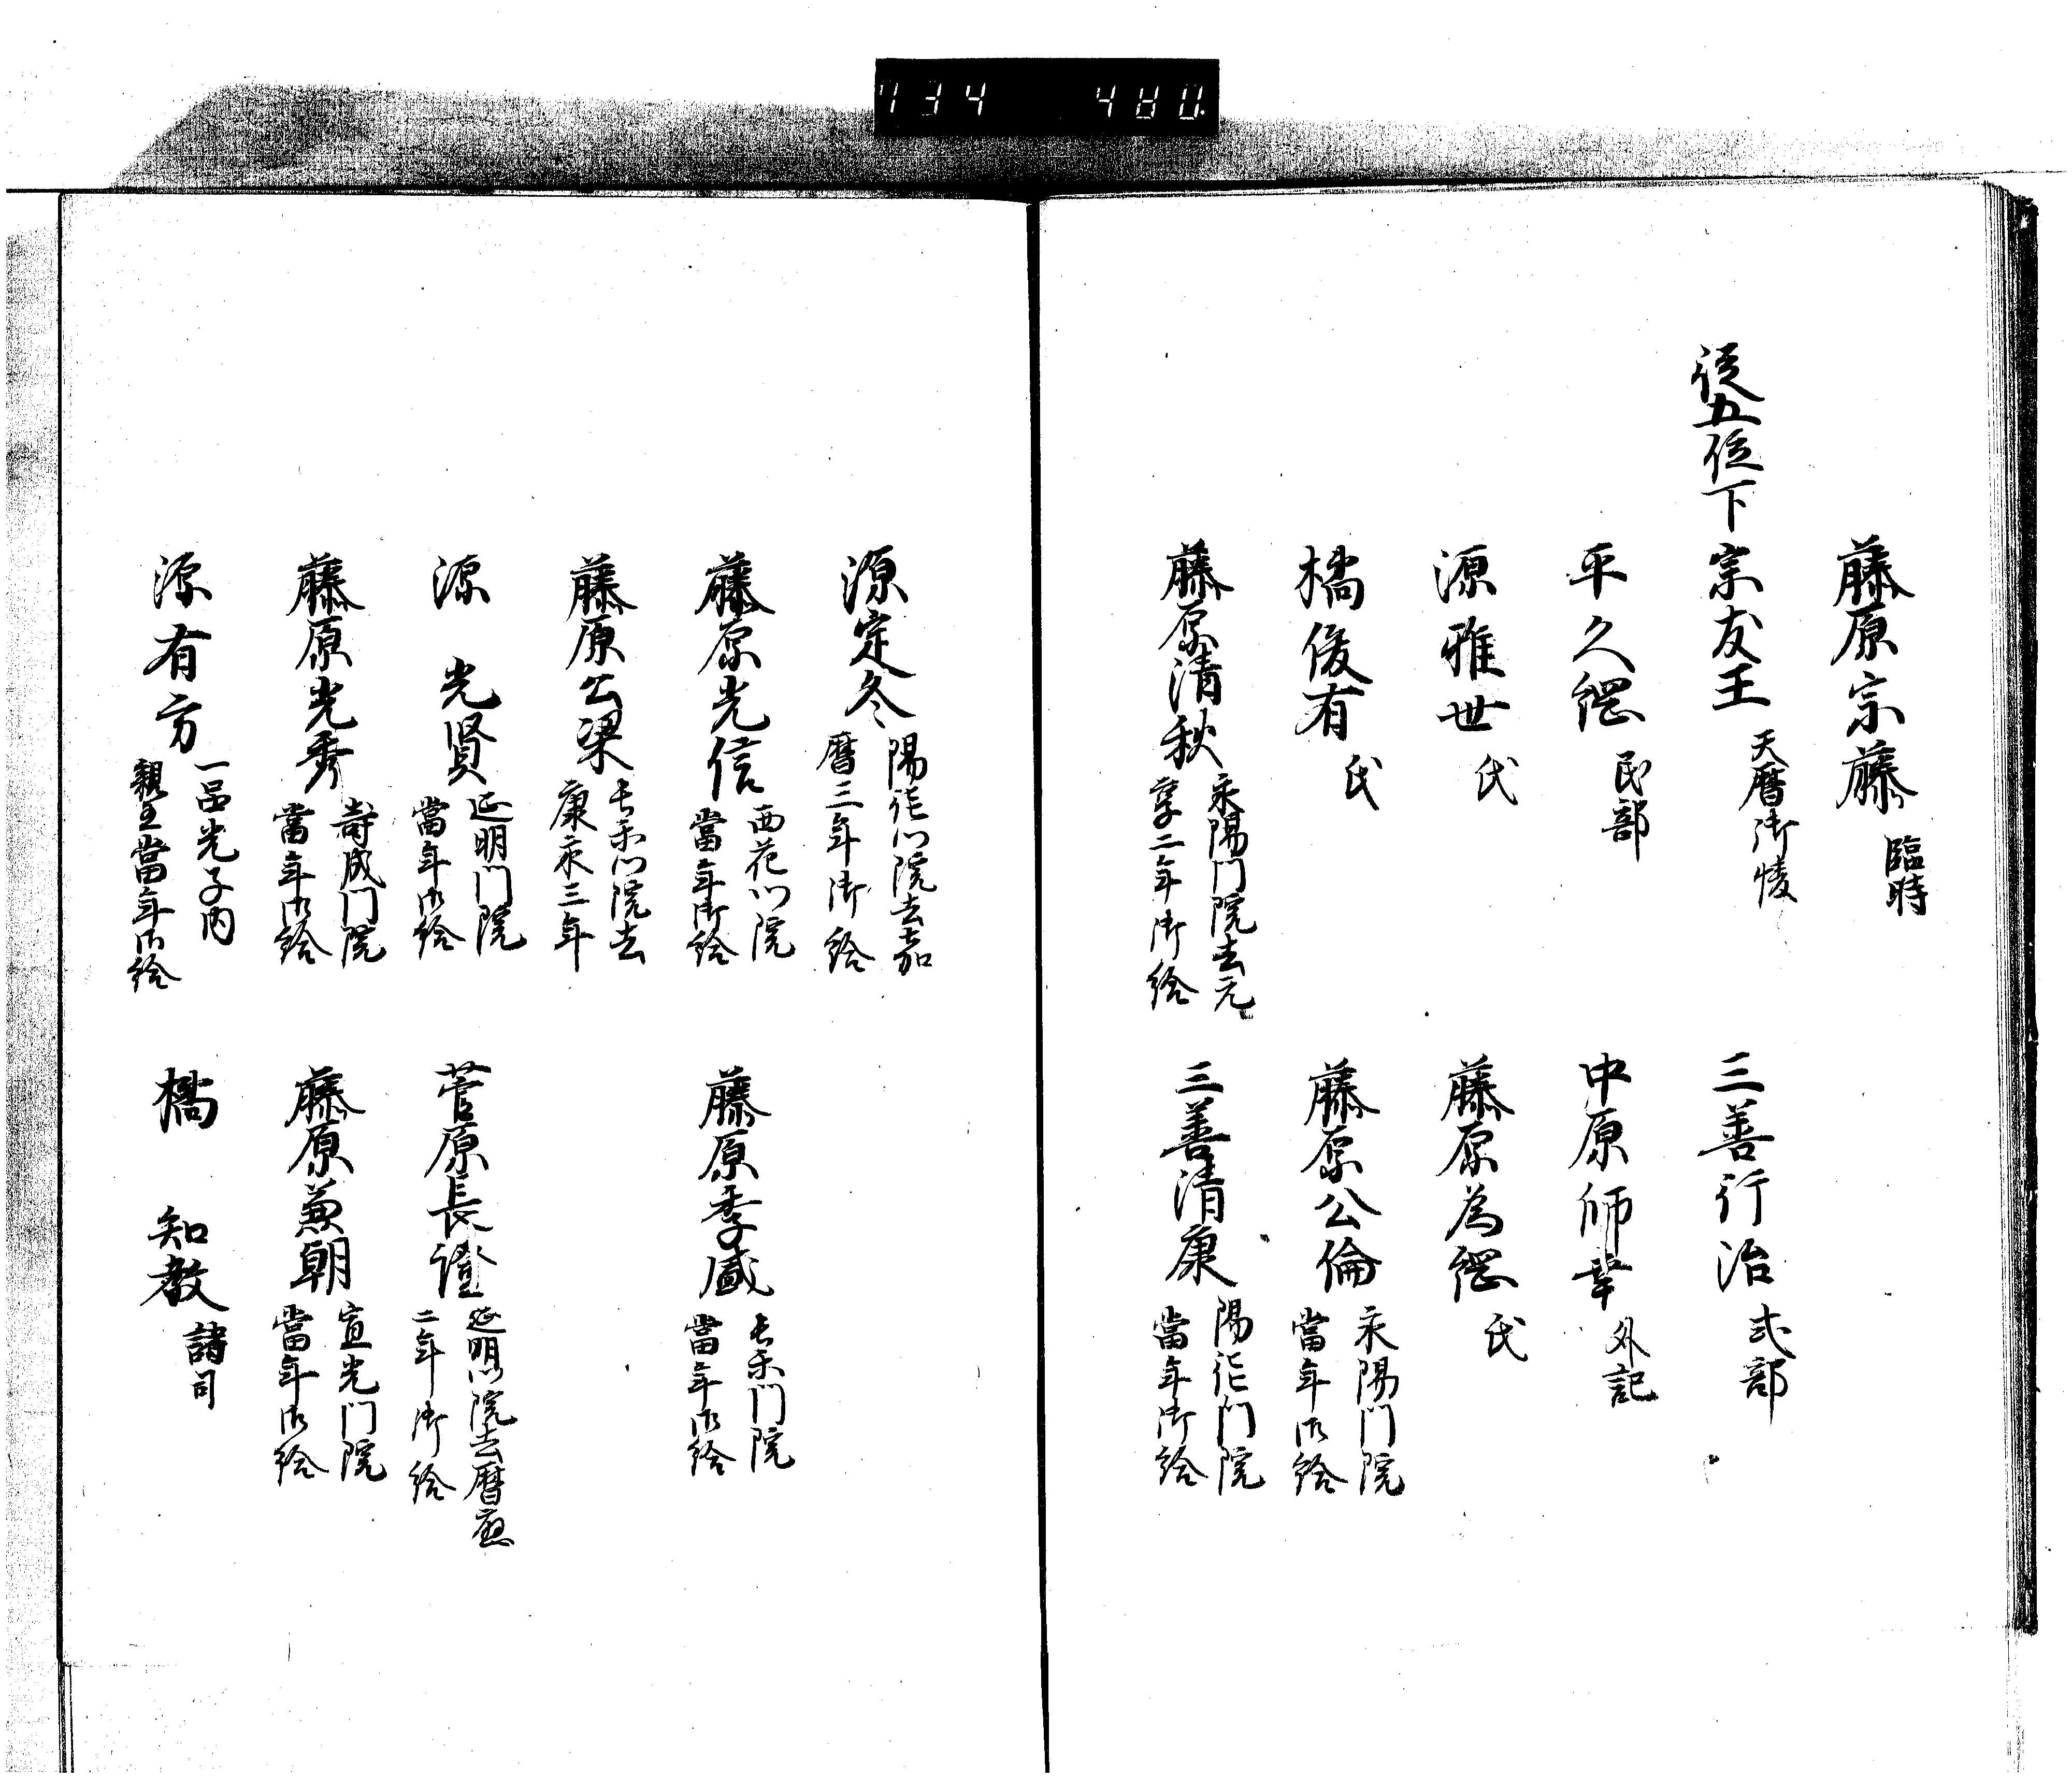 734 480.
藤原宗藤 臨時
従五位下 宗友王 天暦御後 三善行治 式部
平久綱 民部 中原師幸 外記
源雅世 氏 藤原為綱 氏
橘俊有 氏 藤原公倫 永陽門院當年御給
藤原清秋 永陽門院去元亨二年御給 三善清康 陽徳門院當年御給
源定冬 陽徳門院去嘉暦三年御給
藤原光信 西花門院當年御給 藤原季盛 長楽門院當年御給
藤原公梁 長楽門院去康永三年
源光賢 延明門院當年御給 菅原長證 延明門院去暦應二年御給
藤原光秀 寿成門院當年御給 藤原兼朝 宣光門院當年御給
源有方 一品光子内親王當年御給 橘知教 諸司